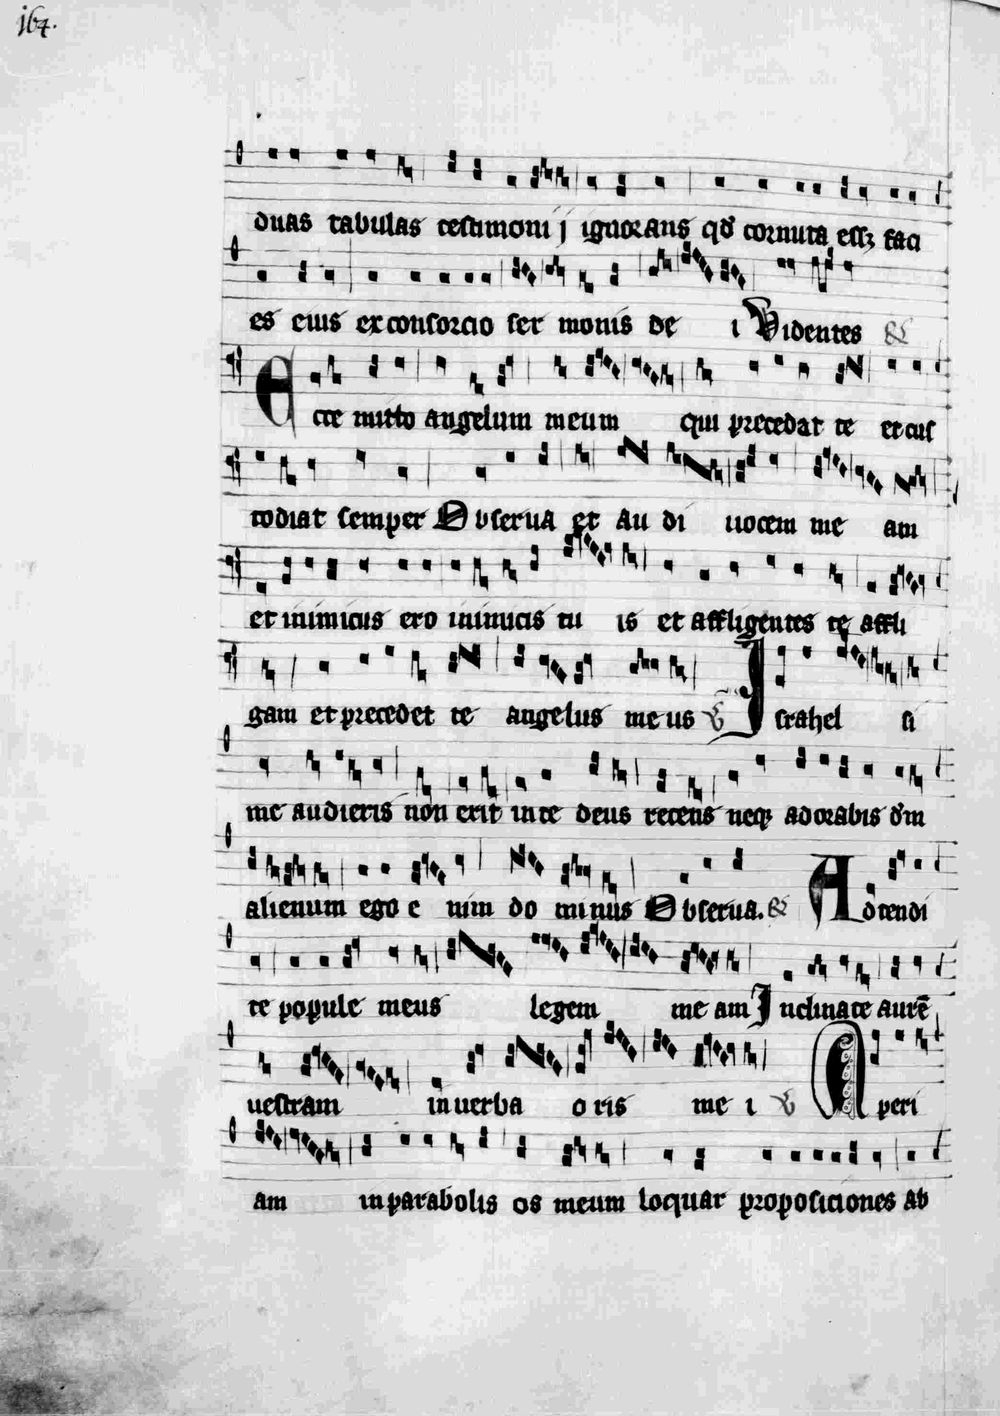 167.
duas tabulas testimoni j ignorans qđ cornuta essꝫ faci
es eius ex consorcio ser monis de i Videntes &
Ecce mitto angelum meum qui precedat te et cus
todiat semper Obserua et au di uocem me am
et inimicus ero inimicis tu is et affligentes te affli
gam et precedet te angelus me us V Israhel si
me audieris non erit in te deus recens neqꝫ adorabis dm̄
alienum ego e nim do minus Obserua. & Adtendi
te popule meus legem me am Inclinate aurē
uestram in uerba o ris me i V Aperi
am in parabolis os meum loquar proposiciones ab